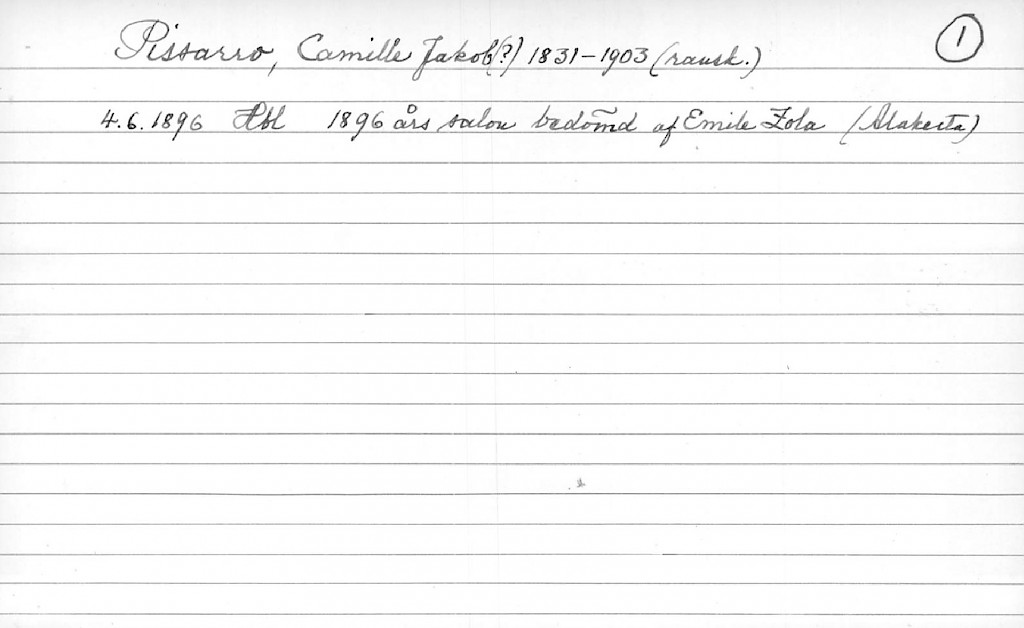 Pissarro, Camille Jakob(?) 1831-1903 (ransk.) 1
4.6.1896 Hbl 1896 års salon bedömd af Emile Zola (Alakerta)